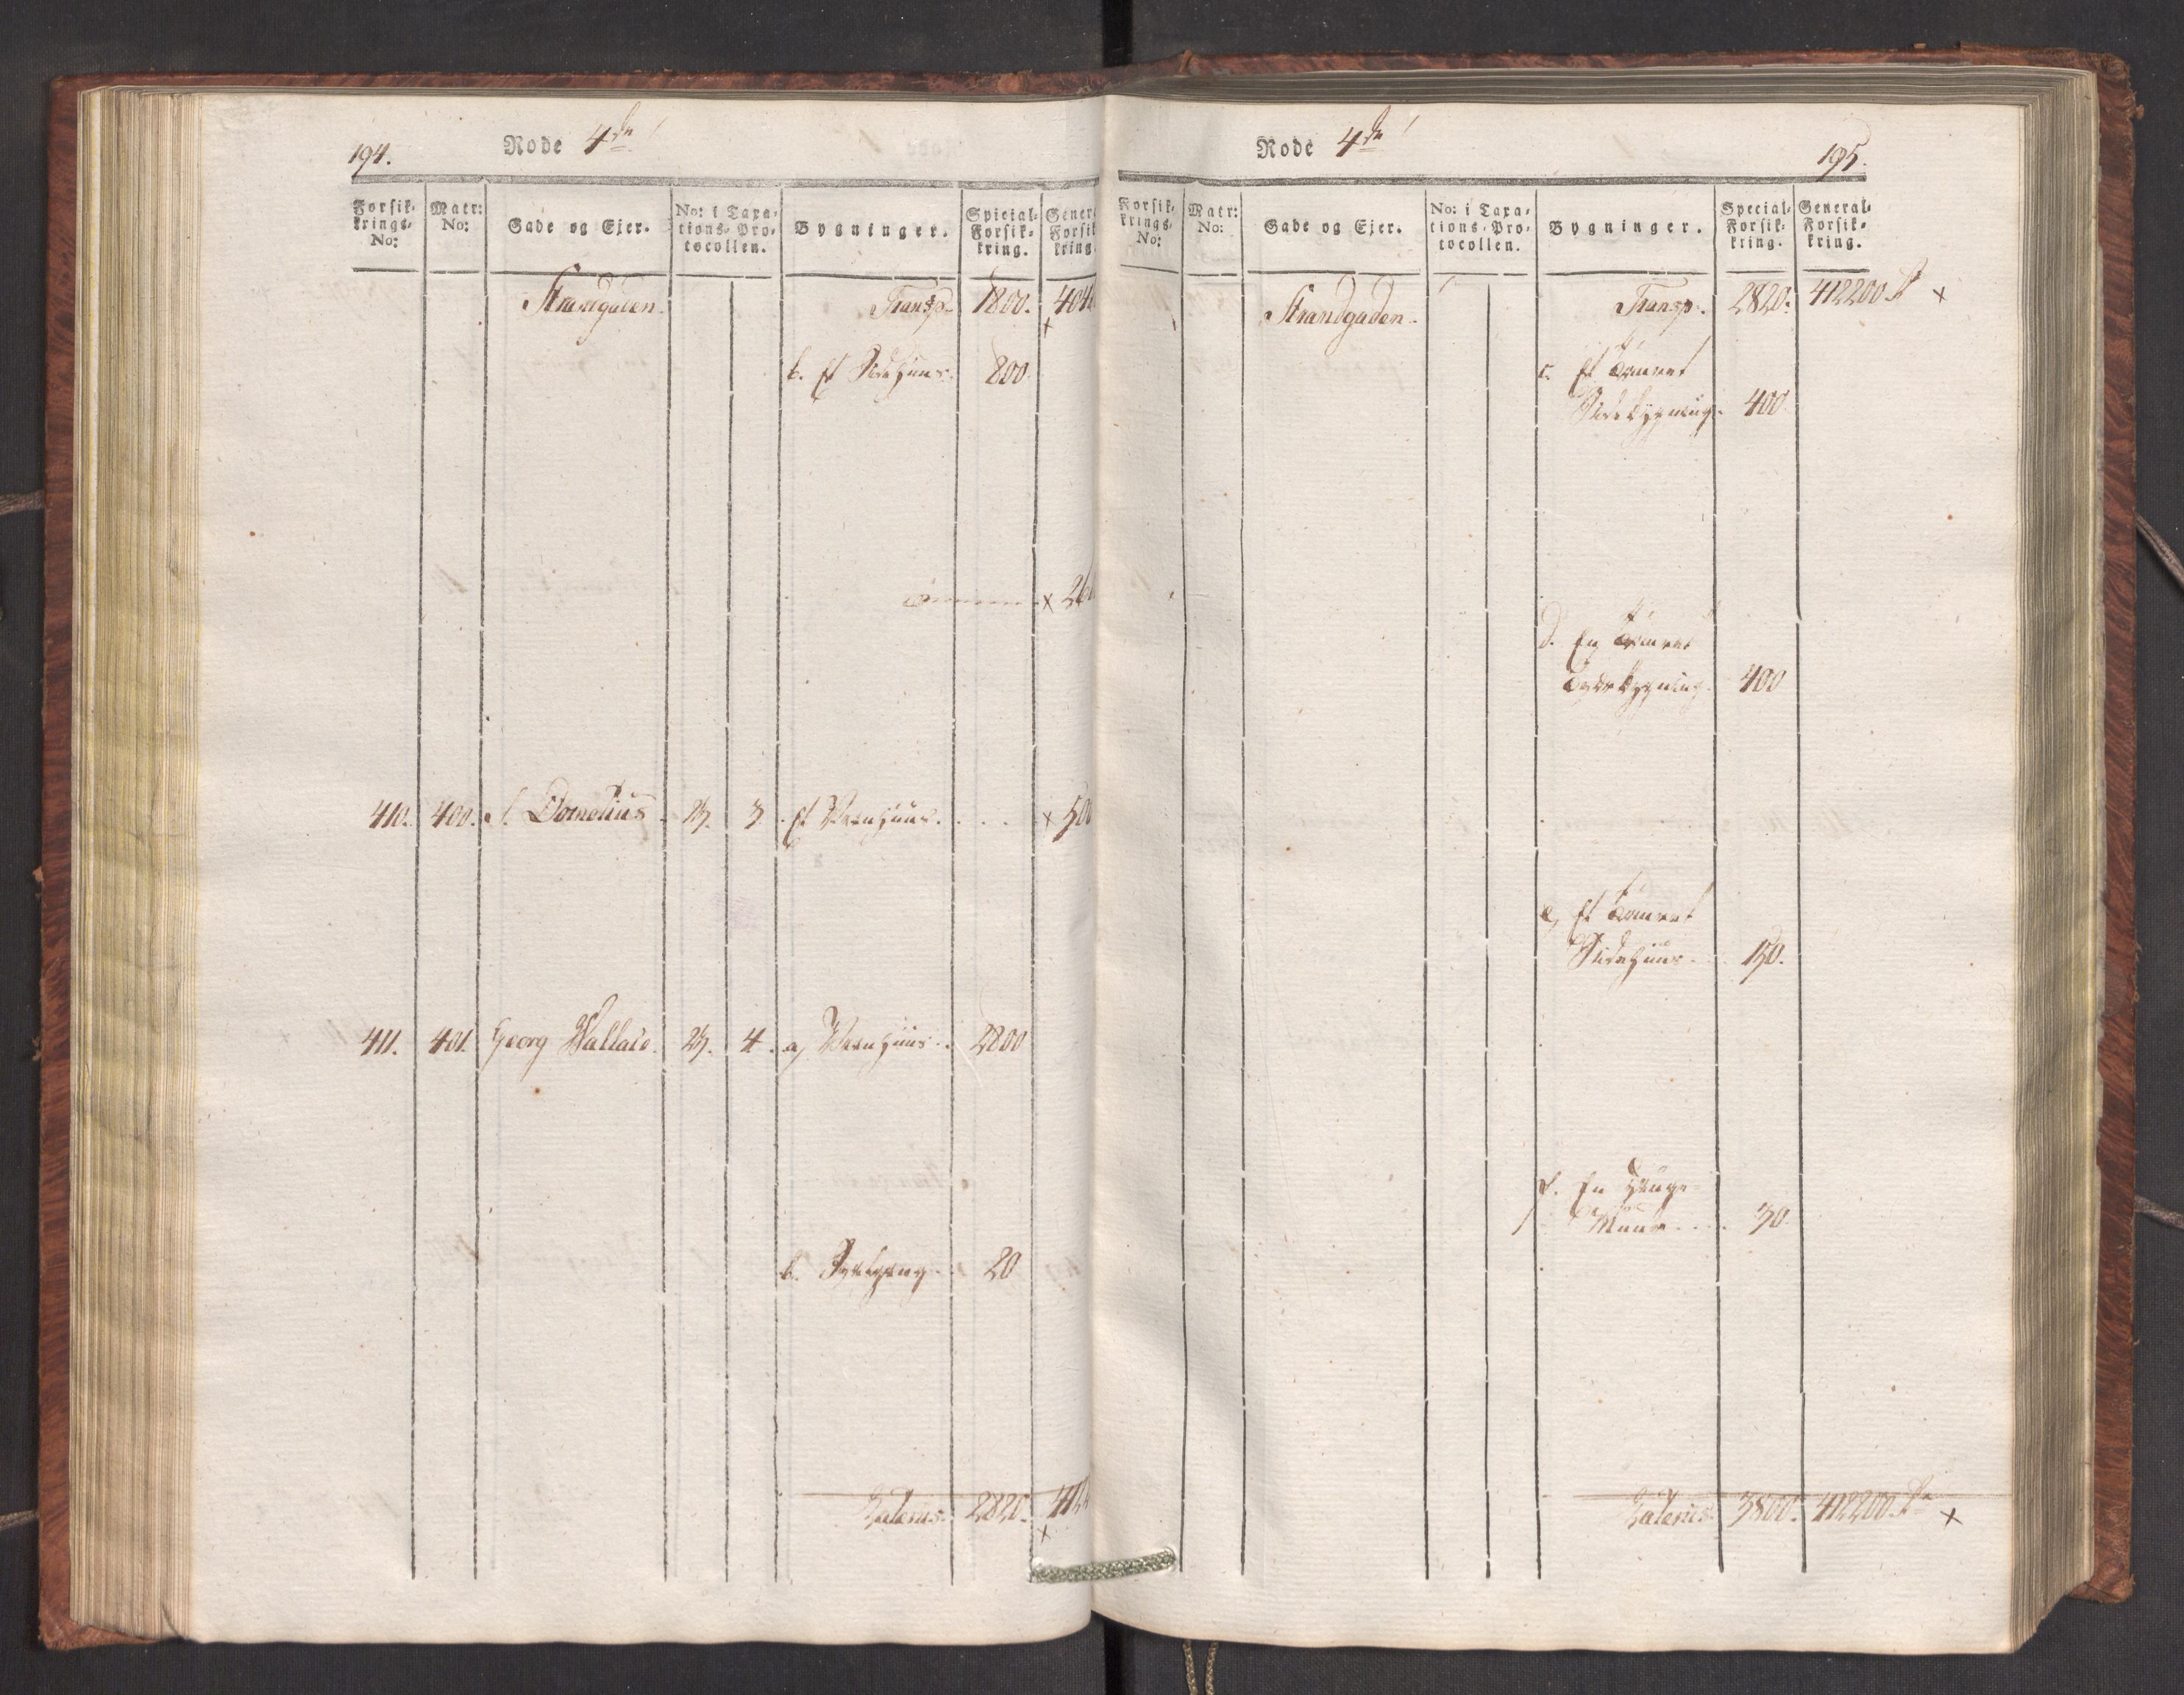 194.
Rode 4de
Forsik- krings- No: Matr: No: Gade og Ejer. No: i Taxa- tions-Pro- tocollen. Bygninger. Special- Forsik- kring. Gener Forsik kring
Strandgaden. Transp. 1800. 404
b. Et Sidehuus. 800.
× 26
410. 400. S. Dornelius 23. 3. Et Vaanhuus. . . . × 500
411. 401. Georg Wallace. 23. 4. a, Vaanhuus. . 2800
b. Svalgang. . 20
Lateris. 2820. 412
×
Rode 4de
195.
Forsik- krings- No: Matr: No: Gade og Ejer. No: i Taxa- tions-Pro- tocollen. Bygninger. Special- Forsik- kring. General- Forsik- kring.
Strandgaden. Transp. 2820. 412200 ×
c. Et Tømret
Sidebygning. 400
d. En Tømret
bygning. 400
e, Et Tømret
Sidehuus. . 150.
f. En Hauge
Muur. . . . 30.
Lateris. 3800. 412200. ×